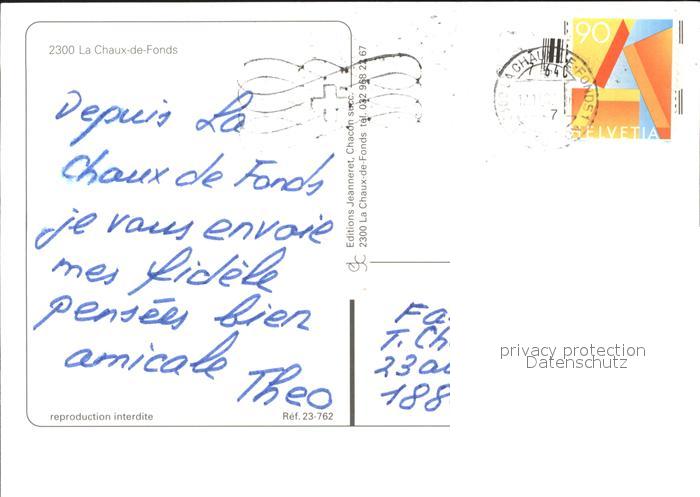 2300 La Chaux-de-Fonds
Depuis La
Chaux de Fonds
je vous envoie
mes fidèle
pensées bien
amicale
Theo
reproduction interdite
Réf. 23-762
Editions Jeanneret, Chacón succ.
2300 La Chaux-de-Fonds tél. 032 968 22 67
90
HELVETIA
LA CHAUX-DE-FONDS 1
7
Fa
T. Ch
23 au
188
privacy protection
Datenschutz